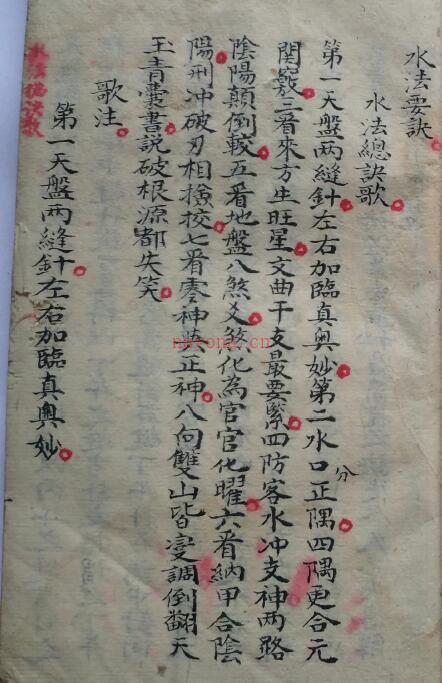 水法要訣
水法總訣歌
第一天盤兩縫針左右加臨真奧妙第二水口分正隅四隅更合元
関竅三看來方生旺星文曲干支最要緊四防客水冲支神两路
陰陽顛倒較五看地盤八煞爻煞化為官官化曜六看納甲合陰
陽刑冲破刃相撿挍七看零神與正神八向雙山皆変調倒翻天
玉青囊書説破根源都失笑
歌注
第一天盤兩縫針左右加臨真奥妙
水法總訣歌